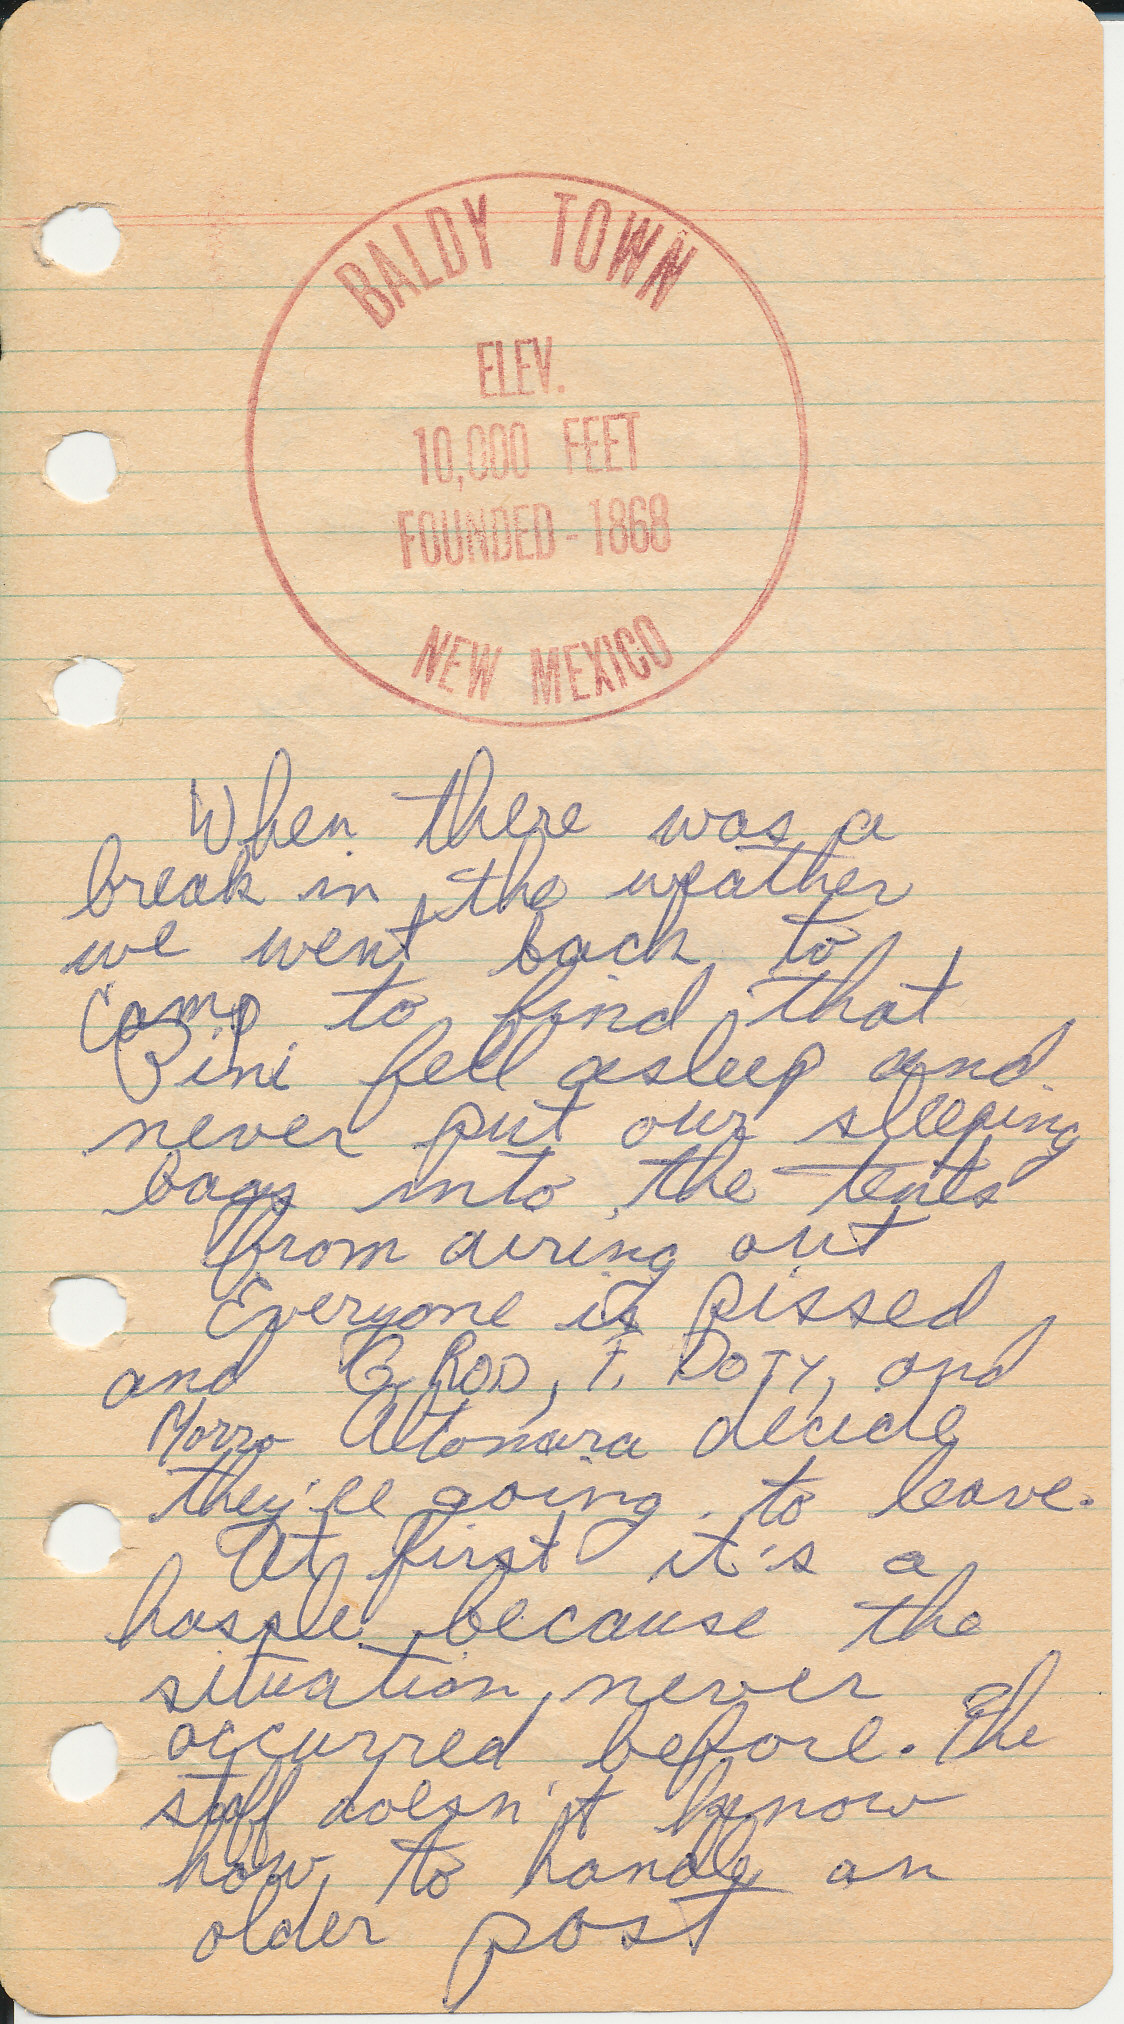 BALDY TOWN
ELEV.
10,000 FEET
FOUNDED - 1868
NEW MEXICO
When there was a
break in the weather
we went back to
camp to find that
Pini fell asleep and
never put our sleeping
bags into the tents
from airing out
Everyone is pissed
and G. ROD, F. DOTY, and
Morro decide
they'll going to leave.
At first it's a
hassle because the
situation never
occurred before. The
staff doesn't know
how to handle an
older post